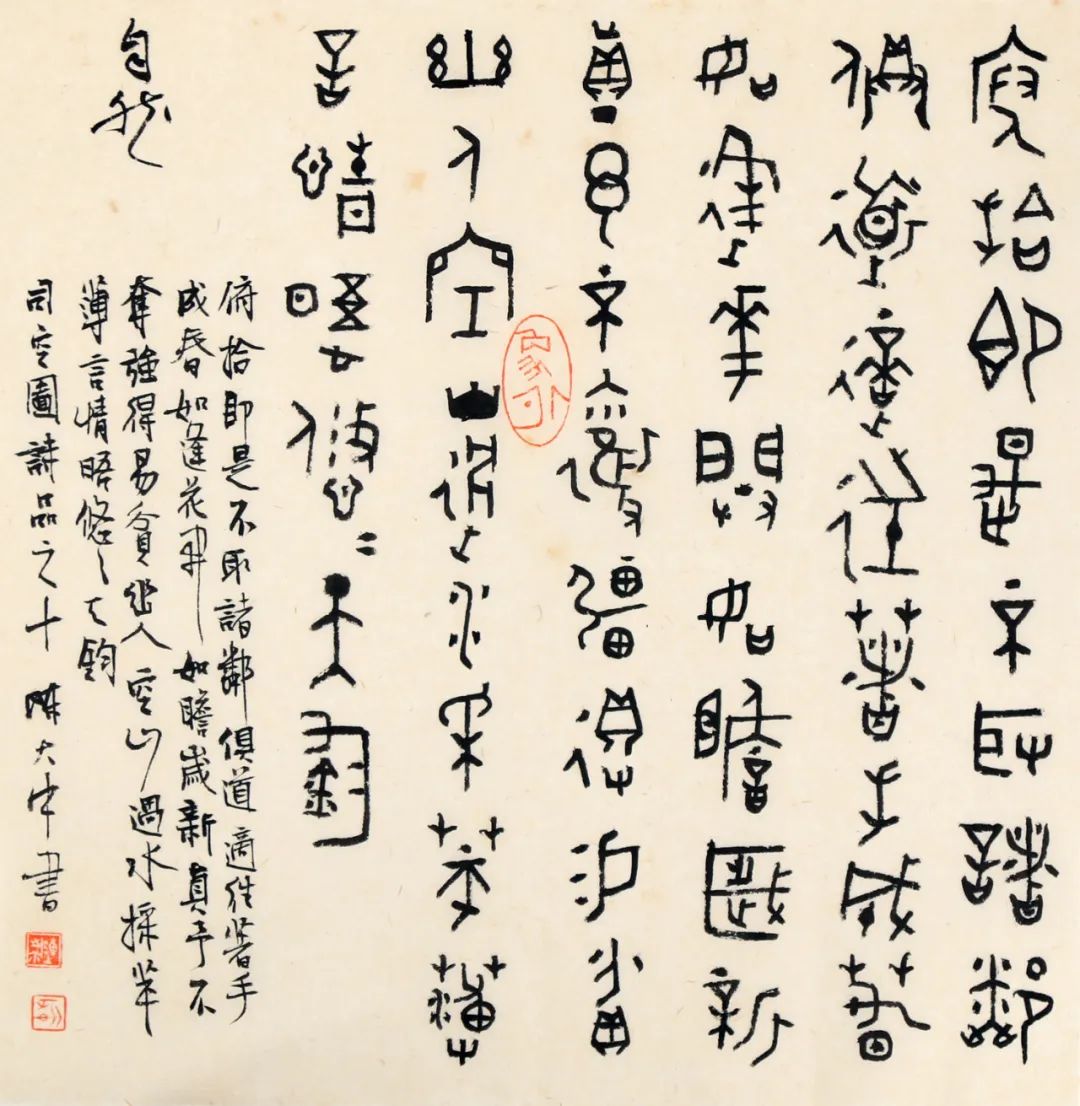 俯拾即是不取諸鄰
俱道適往著手成春
如逢花開如瞻歲新
真予不奪強得易貧
幽人空山過水采苹薄
言情晤悠〻天鈞
自然
俯拾即是不取諸鄰俱道適往著手
成春如逢花開如瞻歲新真予不
奪強得易貧幽人空山過水採苹
薄言情晤悠〻天鈞
司空圖詩品之十 陳大中書